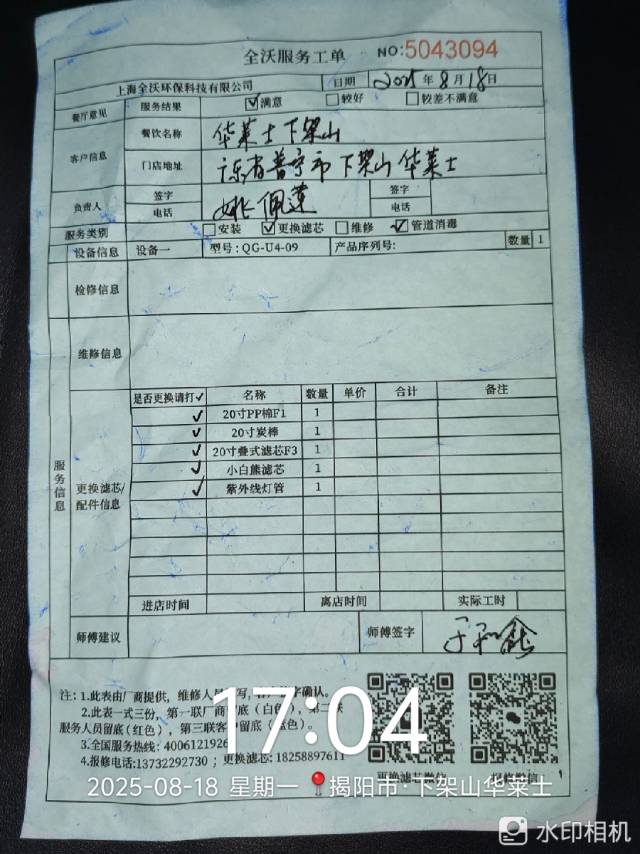 全沃服务工单 NO:5043094
上海全沃环保科技有限公司 日期 2025年8月18日
餐厅意见 服务结果 ☑满意 □较好 □较差不满意
客户信息 餐饮名称 华莱士下架山
门店地址 广东省普宁市下架山华莱士
负责人 签字 姚佩莲 签字
电话 电话
服务类别 □安装 ☑更换滤芯 □维修 ☑管道消毒
设备信息 设备一 型号:QG-U4-09 产品序列号: 数量 1
检修信息
维修信息
服务信息
更换滤芯/配件信息
是否更换请打✓ 名称 数量 单价 合计 备注
✓ 20寸PP棉F1 1
✓ 20寸炭棒 1
✓ 20寸叠式滤芯F3 1
✓ 小白熊滤芯 1
✓ 紫外线灯管 1
进店时间 离店时间 实际工时
师傅建议 师傅签字
注: 1.此表由厂商提供，维修人员 写， 字确认。
2.此表一式三份，第一联厂商 底（白色），
服务人员留底(红色)，第三联客户留底（蓝色）。
3.全国服务热线: 4006121926
4.报修电话:13732292730 ; 更换滤芯:18258897611
更换滤芯微信
17:04
2025-08-18 星期一 揭阳市·下架山华莱士
水印相机